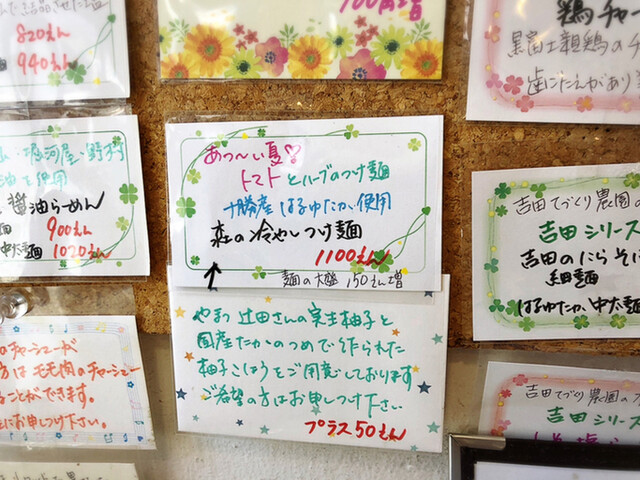 820えん
940えん
100円増
鶏チャー
黒富士親鶏のチ
歯ごたえがあり
堀河屋・野村
油を使用
醤油らーめん
900えん
中太麺 1020えん
あつ〜い夏♡
トマトとハーブのつけ麺
十勝産 はるゆたか使用
森の冷やしつけ麺
1100えん
麺の大盛 150えん増
やまつ辻田さんの実生柚子と
国産たかのつめで作られた
柚子こしょうをご用意しております
ご希望の方はお申しつけ下さい
プラス50えん
吉田てづくり農園の
吉田シリーズ
吉田のにらそば
細麺
はるゆたか、中太麺
のチャーシューが
方はモモ肉のチャーシュー
ることができます。
にお申しつけ下さい。
吉田てづくり農園の
吉田シリーズ